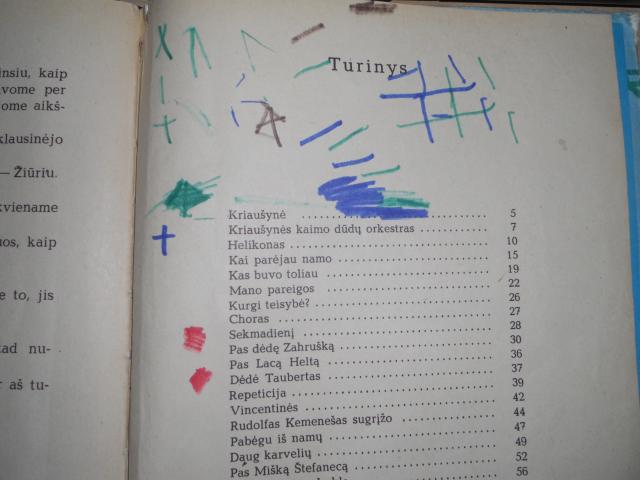 insiu, kaip
vome per
ome aikš-
klausinėjo
— Žiūriu.
kviename
uos, kaip
e to, jis
tad nu-
r aš tu-
Turinys
Kriaušynė 5
Kriaušynės kaimo dūdų orkestras 7
Helikonas 10
Kai parėjau namo 15
Kas buvo toliau 19
Mano pareigos 22
Kurgi teisybė? 26
Choras 27
Sekmadienį 28
Pas dėdę Zahrušką 30
Pas Lacą Heltą 36
Dėdė Taubertas 37
Repeticija 39
Vincentinės 42
Rudolfas Kemenešas sugrįžo 44
Pabėgu iš namų 47
Daug karvelių 49
Pas Mišką Štefanecą 52
56